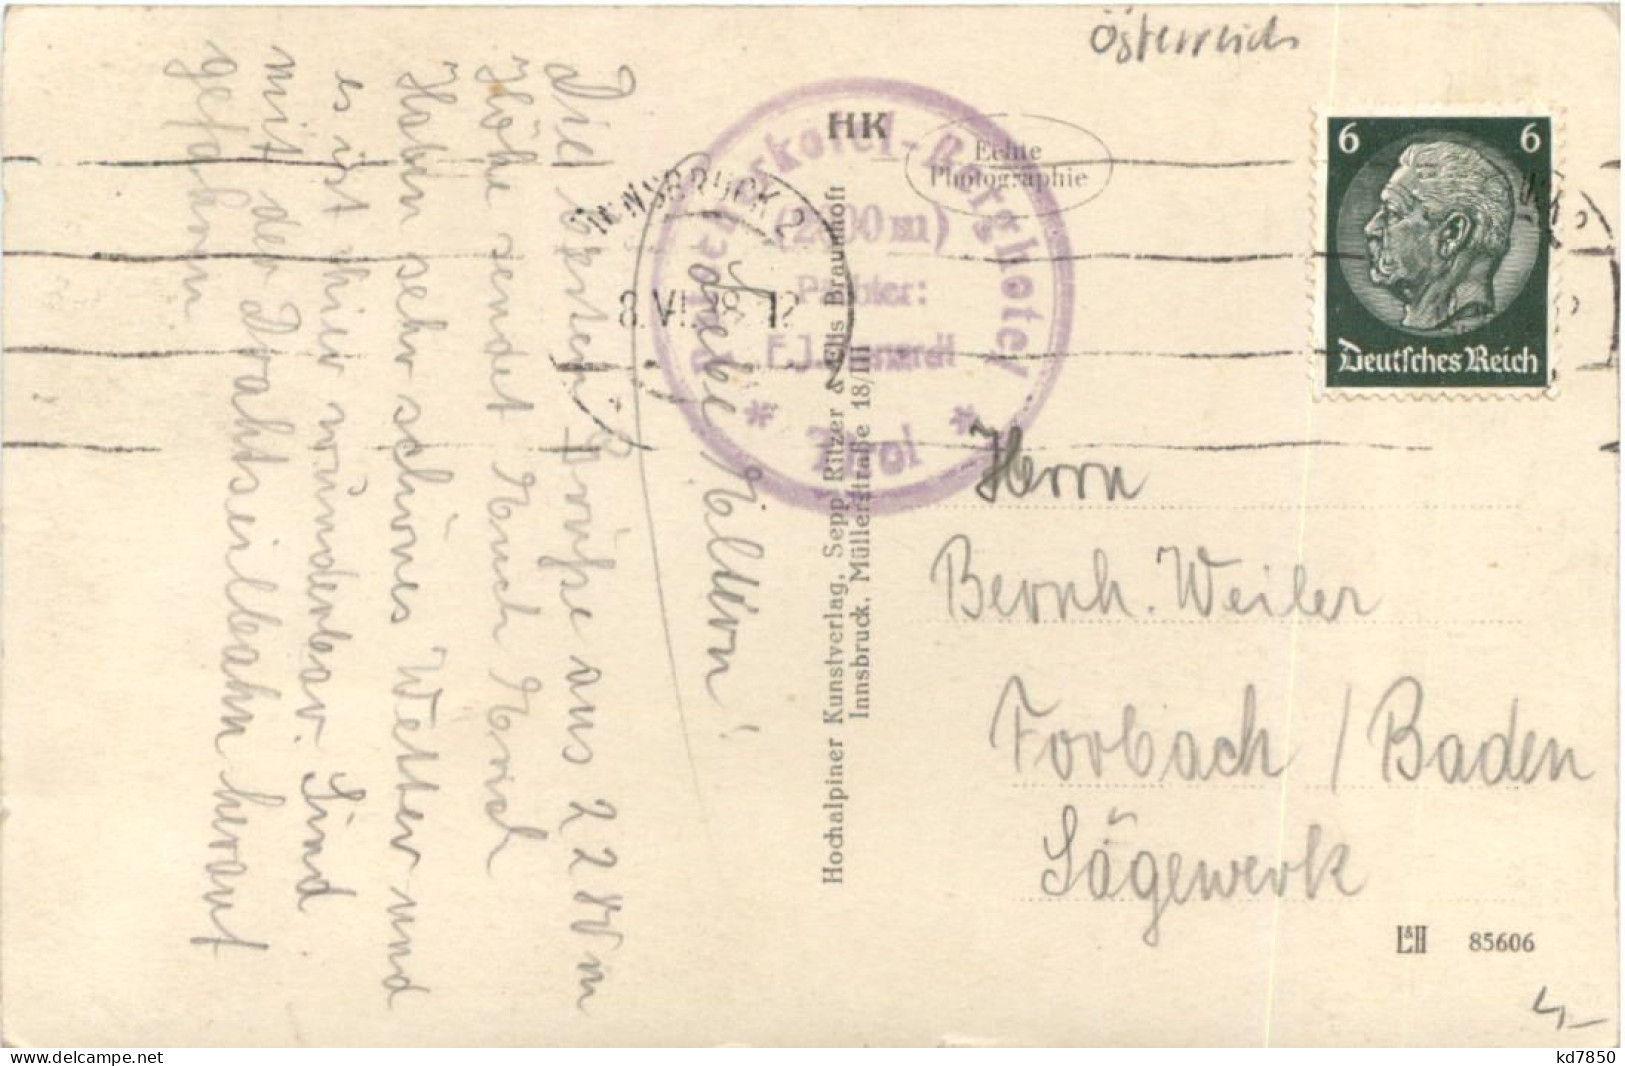 Österreich
HK
Echte
Photographie
6 6
Deutsches Reich
INNSBRUCK 2
8.VI.38 12
-Berghotel
Pächter:
F.J.
Tirol
Liebe Eltern!
Die besten Grüße aus 2200 m
Höhe sendet Euch Erich
Haben sehr schönes Wetter und
es ist hier wunderbar. Sind
mit der Drahtseilbahn herauf
gefahren
Hochalpiner Kunstverlag, Sepp Ritzer & Elis Braunhoft
Innsbruck, Müllerstraße 18/III
Herrn
Bernh. Weiler
Forbach / Baden
Sägewerk
L&H 85606
4,-
www.delcampe.net
kd7850